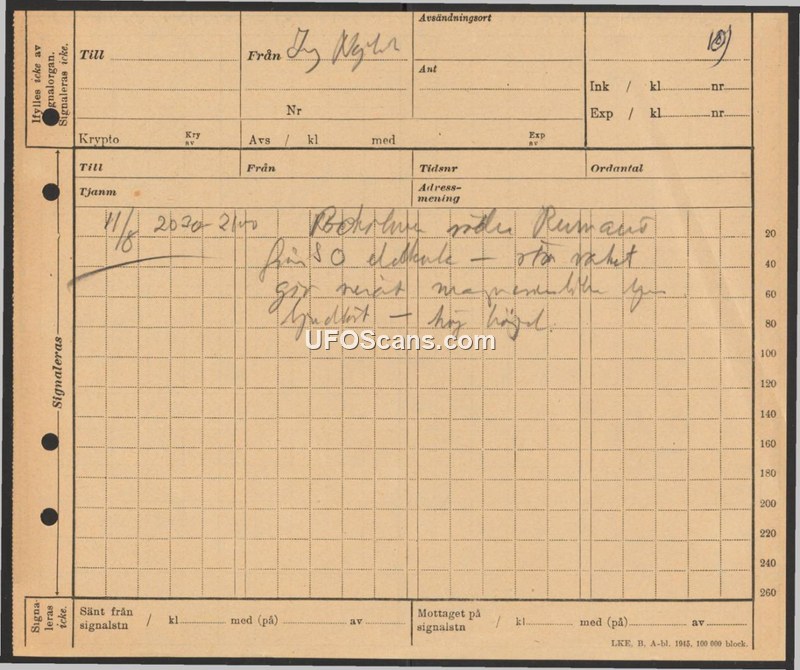 Ifylles icke av
signalorgan.
Signaleras icke.
Till
Från Ing
Avsändningsort
Ant
Nr
Ink / kl nr
Exp / kl nr
Krypto Kry av
Avs / kl med Exp av
Till Från Tidsnr Ordantal
Tjanm Adress-
mening
11/8 2030-2100
från SO eldkula —
ljudlöst — hög
20
40
60
80
100
120
140
160
180
200
220
240
260
Signaleras
UFOScans.com
Signa-
leras
icke.
Sänt från
signalstn / kl med (på) av
Mottaget på
signalstn / kl med (på) av
LKE, B. A-bl. 1945, 100 000 block.